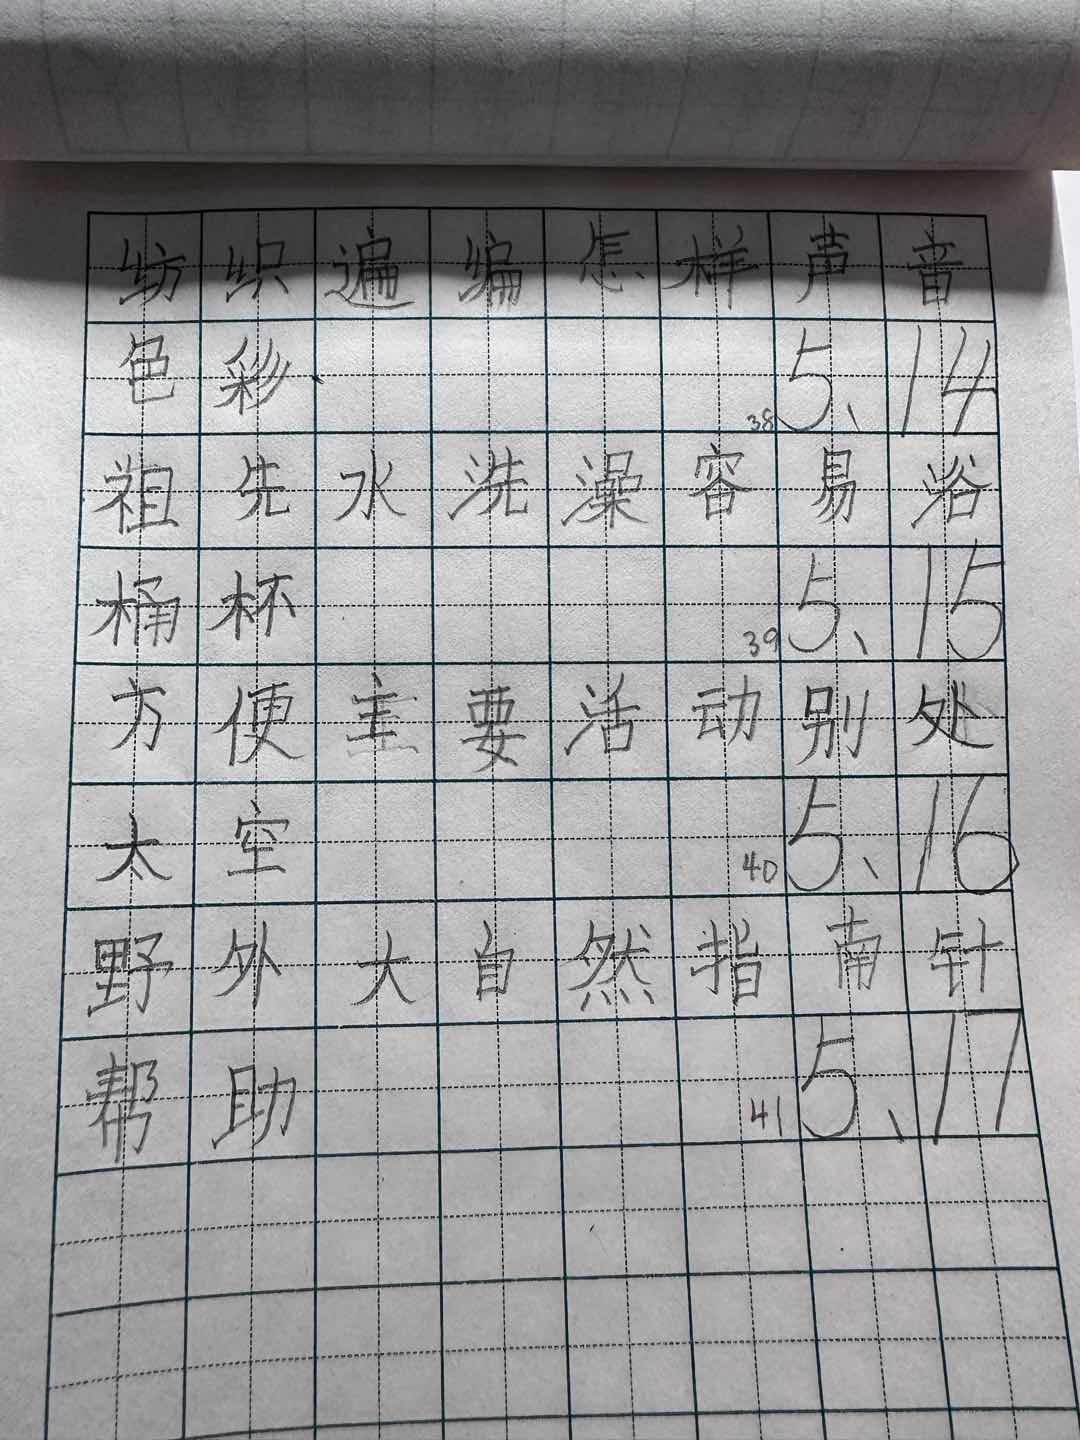 纺织遍编怎样声音
色彩 38 5、14
祖先水洗澡容易浴
桶杯 39 5、15
方便主要活动别处
太空 40 5、16
野外大自然指南针
帮助 41 5、17